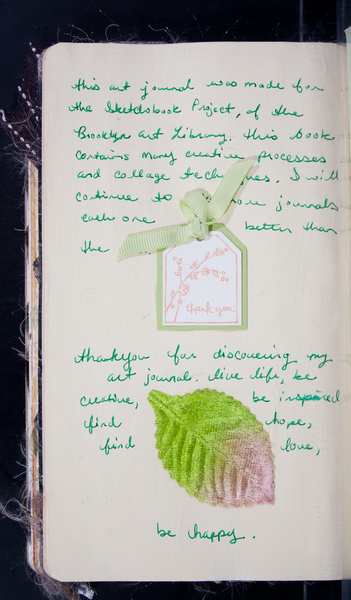 this art journal was made for
the Sketchbook Project, of the
Brooklyn art Library. this book
contains many creative processes
and collage . I will
continue to journals
each one better than
the
thank you
thankyou for discovering my
art journal. live life, be
creative, be inspired
find hope,
find love,
be happy.